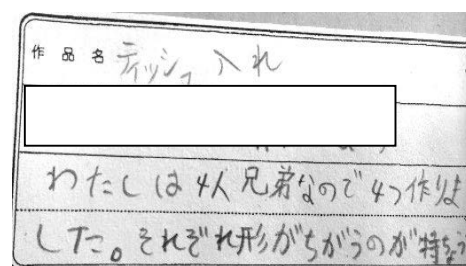 作品名 ティッシュ入れ
わたしは4人兄弟なので4つ作りま
した。それぞれ形がちがうのが特ちょう